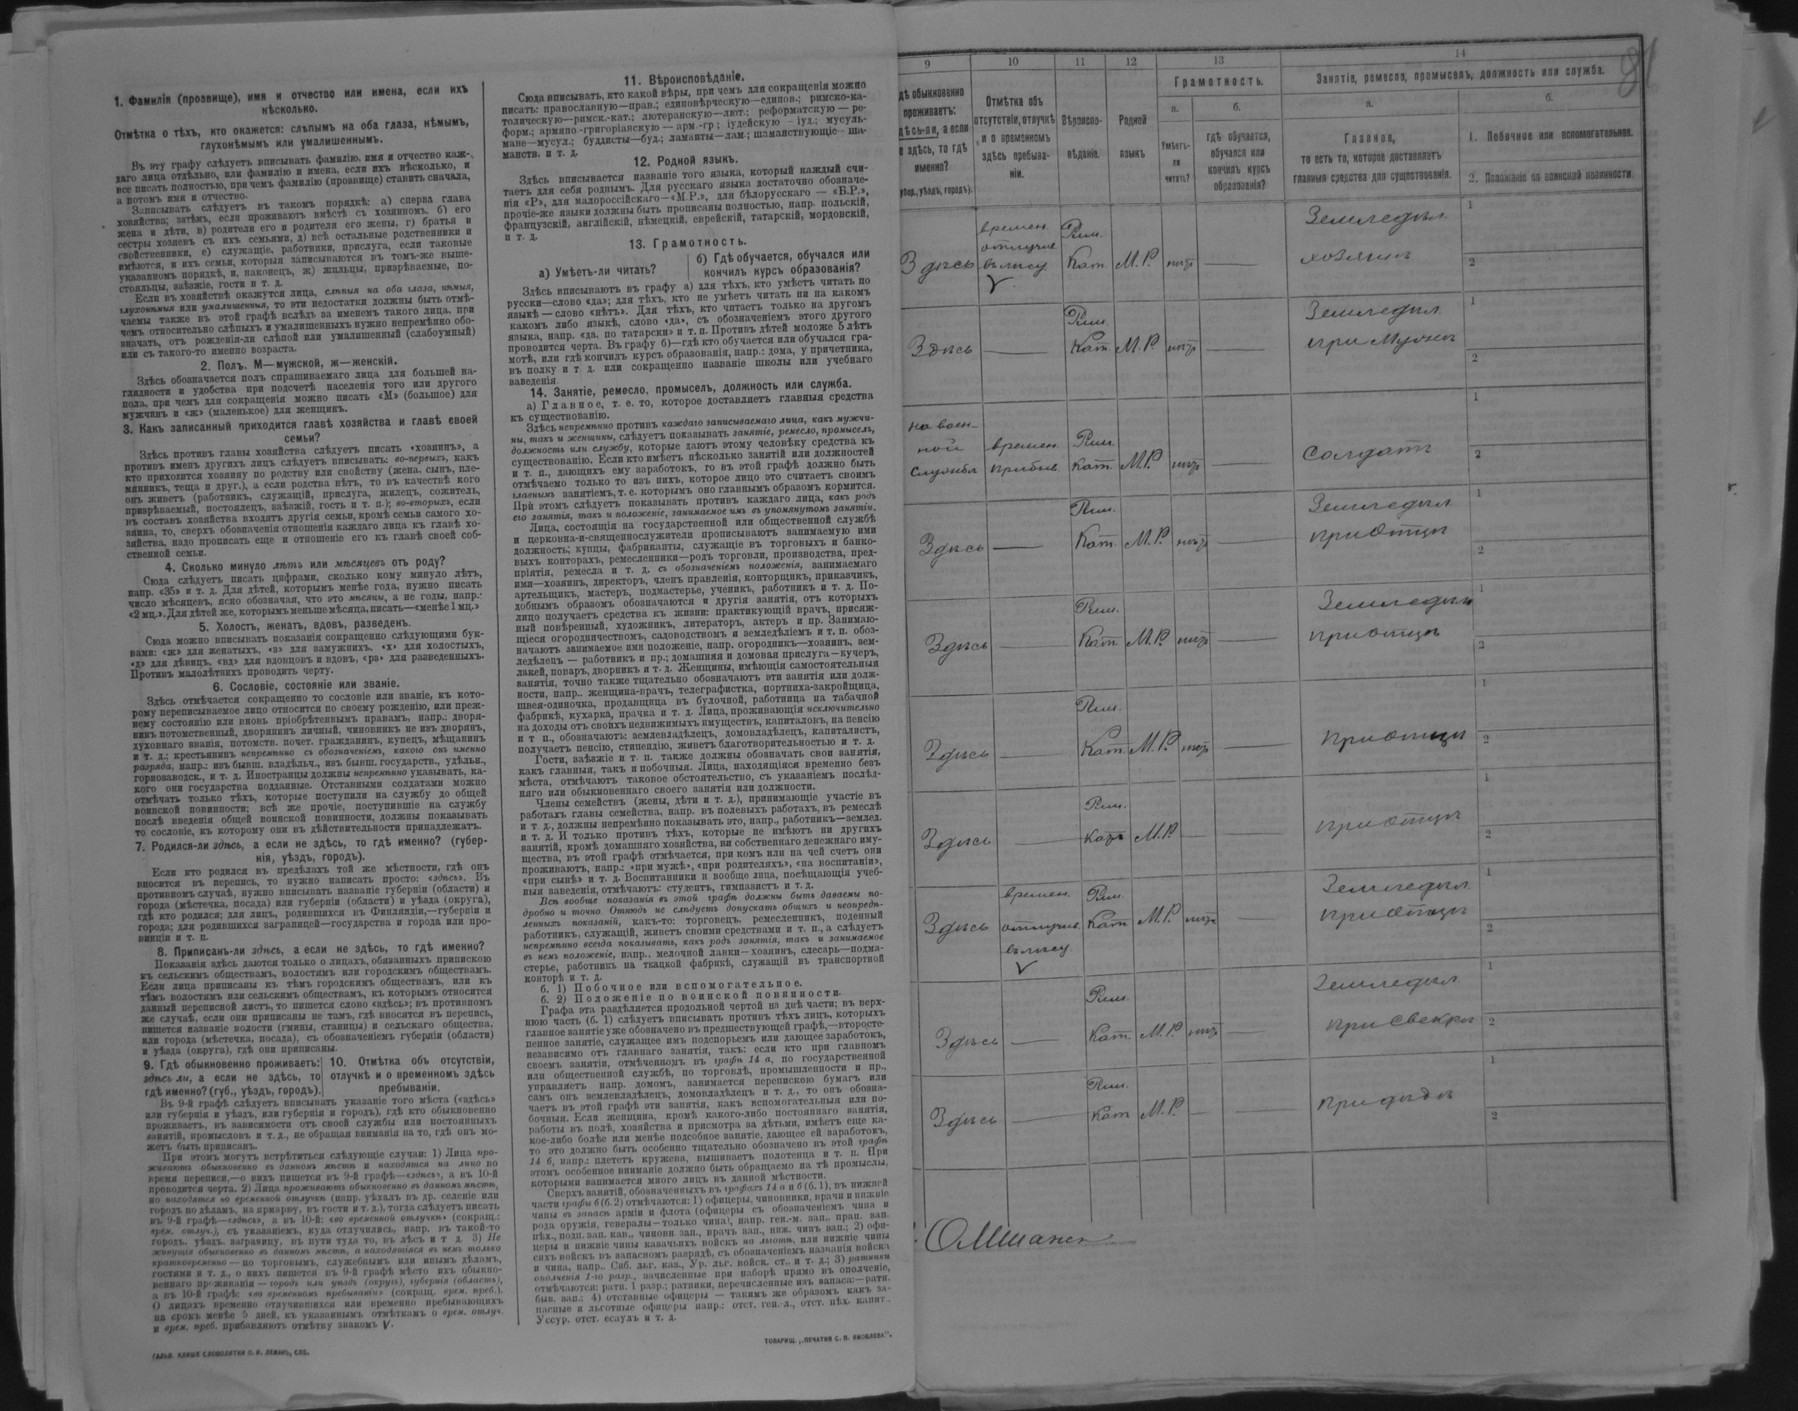 1. Фамилія (прозвище), имя и отчество или имена, если ихъ
нѣсколько.
Отмѣтка о тѣхъ, кто окажется: слѣпымъ на оба глаза, нѣмымъ,
глухонѣмымъ или умалишеннымъ.
Въ эту графу слѣдуетъ вписывать фамилію, имя и отчество каж-
даго лица отдѣльно, или фамилію и имена, если ихъ нѣсколько, и
все писать полностью, при чемъ фамилію (прозвище) ставить сначала,
а потомъ имя и отчество.
Записывать слѣдуетъ въ такомъ порядкѣ: а) сперва глава
хозяйства; затѣмъ, если проживаютъ вмѣстѣ съ хозяиномъ. б) его
жена и дѣти, в) родители его и родителя его жены, г) братья и
сестры хозяевъ съ ихъ семьями, д) всѣ остальные родственники и
свойственники, е) служащіе, работники, прислуга, если таковые
имѣются, и ихъ семьи, которыя записываются въ томъ-же выше-
указанномъ порядкѣ, и, наконецъ, ж) жильцы, призрѣваемые, по-
стояльцы, заѣзжіе, гости и т. д.
Если въ хозяйствѣ окажутся лица, слѣпыя на оба глаза, нѣмыя,
глухонѣмыя или умалишенныя, то эти недостатки должны быть отмѣ-
чаемы также въ этой графѣ вслѣдъ за именемъ такого лица, при
чемъ относительно слѣпыхъ и умалишенныхъ нужно непремѣнно обо-
значать, отъ рожденія-ли слѣпой или умалишенный (слабоумный)
или съ такого-то именно возраста.
2. Полъ. М—мужской, ж—женскій.
Здѣсь обозначается полъ спрашиваемаго лица для большей на-
глядности и удобства при подсчетѣ населенія того или другого
пола, при чемъ для сокращенія можно писать «М» (большое) для
мужчинъ и «ж» (маленькое) для женщинъ.
3. Какъ записанный приходится главѣ хозяйства и главѣ своей
семьи?
Здѣсь противъ главы хозяйства слѣдуетъ писать «хозяинъ», а
противъ именъ другихъ лицъ слѣдуетъ вписывать: во-первыхъ, какъ
кто приходится хозяину по родству или свойству (жена, сынъ, пле-
мянникъ, теща и друг.), а если родства нѣтъ, то въ качествѣ кого
онъ живетъ (работникъ, служащій, прислуга, жилецъ, сожитель,
призрѣваемый, постоялецъ, заѣзжій, гость и т. п.); во-вторыхъ, если
въ составъ хозяйства входятъ другія семьи, кромѣ семьи самого хо-
зяина, то, сверхъ обозначенія отношенія каждаго лица къ главѣ хо-
зяйства, надо прописать еще и отношеніе его къ главѣ своей соб-
ственной семьи.
4. Сколько минуло лѣтъ или мѣсяцевъ отъ роду?
Сюда слѣдуетъ писать цифрами, сколько кому минуло лѣтъ,
напр. «35» и т. д. Для дѣтей, которымъ менѣе года, нужно писать
число мѣсяцевъ, ясно обозначая, что это мѣсяцы, а не годы, напр.:
«2 мц.». Для дѣтей же, которымъ меньше мѣсяца, писать—«менѣе 1 мц.»
5. Холостъ, женатъ, вдовъ, разведенъ.
Сюда можно вписывать показанія сокращенно слѣдующими бук-
вами: «ж» для женатыхъ, «з» для замужнихъ, «х» для холостыхъ,
«д» для дѣвицъ, «вд» для вдовцовъ и вдовъ, «рз» для разведенныхъ.
Противъ малолѣтнихъ проводить черту.
6. Сословіе, состояніе или званіе.
Здѣсь отмѣчается сокращенно то сословіе или званіе, къ кото-
рому переписываемое лицо относится по своему рожденію, или преж-
нему состоянію или вновь пріобрѣтеннымъ правамъ, напр.: дворя-
нинъ потомственный, дворянинъ личный, чиновникъ не изъ дворянъ,
духовнаго званія, потомств. почет. гражданинъ, купецъ, мѣщанинъ
и т. д.; крестьянинъ непремѣнно съ обозначеніемъ, какого онъ именно
разряда, напр.: изъ бывш. владѣльч., изъ бывш. государств., удѣльн.,
горнозаводск., и т. д. Иностранцы должны непремѣнно указывать, ка-
кого они государства подданные. Отставными солдатами можно
отмѣчать только тѣхъ, которые поступили на службу до общей
воинской повинности; всѣ же прочіе, поступившіе на службу
послѣ введенія общей воинской повинности, должны показывать
то сословіе, къ которому они въ дѣйствительности принадлежатъ.
7. Родился-ли здѣсь, а если не здѣсь, то гдѣ именно? (губер-
нія, уѣздъ, городъ).
Если кто родился въ предѣлахъ той же мѣстности, гдѣ онъ
вносится въ перепись, то нужно написать просто: «здѣсь». Въ
противномъ случаѣ, нужно вписывать названіе губерніи (области) и
города (мѣстечка, посада) или губерніи (области) и уѣзда (округа),
гдѣ кто родился; для лицъ, родившихся въ Финляндіи,—губерніи и
города; для родившихся заграницей—государства и города или про-
винціи и т. п.
8. Приписанъ-ли здѣсь, а если не здѣсь, то гдѣ именно?
Показанія здѣсь даются только о лицахъ, обязанныхъ припискою
къ сельскимъ обществамъ, волостямъ или городскимъ обществамъ.
Если лица приписаны къ тѣмъ городскимъ обществамъ, или къ
тѣмъ волостямъ или сельскимъ обществамъ, къ которымъ относится
данный переписной листъ, то пишется слово «здѣсь»; въ противномъ
же случаѣ, если они приписаны не тамъ, гдѣ вносятся въ перепись,
пишется названіе волости (гмины, станицы) и сельскаго общества,
или города (мѣстечка, посада), съ обозначеніемъ губерніи (области)
и уѣзда (округа), гдѣ они приписаны.
9. Гдѣ обыкновенно проживаетъ:
здѣсь ли, а если не здѣсь, то
гдѣ именно? (губ., уѣздъ, городъ).
10. Отмѣтка объ отсутствіи,
отлучкѣ и о временномъ здѣсь
пребываніи.
Въ 9-й графѣ слѣдуетъ вписывать указаніе того мѣста («здѣсь»
или губернія и уѣздъ, или губернія и городъ), гдѣ кто обыкновенно
проживаетъ, въ зависимости отъ своей службы или постоянныхъ
занятій, промысловъ и т. д., не обращая вниманія на то, гдѣ онъ мо-
жетъ быть приписанъ.
При этомъ могутъ встрѣтиться слѣдующіе случаи: 1) Лица про-
живаютъ обыкновенно въ данномъ мѣстѣ и находятся на лицо во
время переписи,—о нихъ пишется въ 9-й графѣ—«здѣсь», а въ 10-й
проводится черта. 2) Лица проживаютъ обыкновенно въ данномъ мѣстѣ,
но находятся во временной отлучкѣ (напр. уѣхалъ въ др. селеніе или
городъ по дѣламъ, на ярмарку, въ гости и т. д.), тогда слѣдуетъ писать
въ 9-й графѣ—«здѣсь», а въ 10-й: «во временной отлучкѣ» (сокращ.:
врем. отлуч.), съ указаніемъ, куда отлучились, напр. въ такой-то
городъ, уѣздъ, заграницу, въ пути туда то, въ лѣсъ и т д. 3) Не
живущія обыкновенно въ данномъ мѣстѣ, а находящіяся въ немъ только
кратковременно — по торговымъ, служебнымъ или инымъ дѣламъ,
гостями и т. д., о нихъ пишется въ 9-й графѣ мѣсто ихъ обыкно-
веннаго проживанія — городъ или уѣздъ (округъ), губернія (область),
а въ 10-й графѣ: «во временномъ пребываніи» (сокращ. врем. преб.).
О лицахъ временно отлучившихся или временно пребывающихъ
на срокъ менѣе 5 дней, къ указаннымъ отмѣткамъ о врем. отлуч.
и врем. преб. прибавляютъ отмѣтку знакомъ V.
ГАЛЬВ. КЛИШЕ СЛОВОЛИТНИ О. И. ЛЕМАНЪ, СПБ.
11. Вѣроисповѣданіе.
Сюда вписывать, кто какой вѣры, при чемъ для сокращенія можно
писать: православную—прав.; единовѣрческую—единов.; римско-ка-
толическую—римск.-кат.; лютеранскую—лют.; реформатскую — ре-
форм.; армяно-григоріанскую — арм.-гр; іудейскую — іуд.; мусуль-
мане—мусул.; буддисты—буд.; ламаиты—лам.; шаманствующіе — ша-
манств. и т. д.
12. Родной языкъ.
Здѣсь вписывается названіе того языка, который каждый счи-
таетъ для себя роднымъ. Для русскаго языка достаточно обозначе-
нія «Р», для малороссійскаго—«М.Р.», для бѣлорусскаго — «Б.Р.»,
прочіе-же языки должны быть прописаны полностью, напр. польскій,
французскій, англійскій, нѣмецкій, еврейскій, татарскій, мордовскій,
и т. д.
13. Грамотность.
а) Умѣетъ-ли читать?
б) Гдѣ обучается, обучался или
кончилъ курсъ образованія?
Здѣсь вписываютъ въ графу а) для тѣхъ, кто умѣетъ читать по
русски—слово «да»; для тѣхъ, кто не умѣетъ читать ни на какомъ
языкѣ — слово «нѣтъ». Для тѣхъ, кто читаетъ только на другомъ
какомъ либо языкѣ, слово «да», съ обозначеніемъ этого другого
языка, напр. «да, по татарски» и т. п. Противъ дѣтей моложе 5 лѣтъ
проводится черта. Въ графу б)—гдѣ кто обучается или обучался гра-
мотѣ, или гдѣ кончилъ курсъ образованія, напр.: дома, у причетника,
въ полку и т. д. или сокращенно названіе школы или учебнаго
заведенія.
14. Занятіе, ремесло, промыселъ, должность или служба.
а) Главное, т. е. то, которое доставляетъ главныя средства
къ существованію.
Здѣсь непремѣнно противъ каждаго записываемаго лица, какъ мужчи-
ны, такъ и женщины, слѣдуетъ показывать занятіе, ремесло, промыселъ,
должность или службу, которые даютъ этому человѣку средства къ
существованію. Если кто имѣетъ нѣсколько занятій или должностей
и т. п., дающихъ ему заработокъ, то въ этой графѣ должно быть
отмѣчаемо только то изъ нихъ, которое лицо это считаетъ своимъ
главнымъ занятіемъ, т. е. которымъ оно главнымъ образомъ кормится.
При этомъ слѣдуетъ показывать противъ каждаго лица, какъ родъ
его занятія, такъ и положеніе, занимаемое имъ въ упомянутомъ занятіи.
Лица, состоящія на государственной или общественной службѣ
и церковно-и-священнослужители прописываютъ занимаемую ими
должность; купцы, фабриканты, служащіе въ торговыхъ и банко-
выхъ конторахъ, ремесленники—родъ торговли, производства, пред-
пріятія, ремесла и т. д. съ обозначеніемъ положенія, занимаемаго
ими—хозяинъ, директоръ, членъ правленія, конторщикъ, прикавчикъ,
артельщикъ, мастеръ, подмастерье, ученикъ, работникъ и т. д. По-
добнымъ образомъ обозначаются и другія занятія, отъ которыхъ
лицо получаетъ средства къ жизни: практикующій врачъ, присяж-
ный повѣренный, художникъ, литераторъ, актеръ и пр. Занимаю-
щіеся огородничествомъ, садоводствомъ и земледѣліемъ и т. п. обоз-
начаютъ занимаемое ими положеніе, напр. огородникъ—хозяинъ, зем-
ледѣлецъ — работникъ и пр.; домашняя и домовая прислуга—кучеръ,
лакей, поваръ, дворникъ и т. д. Женщины, имѣющія самостоятельныя
занятія, точно также тщательно обозначаютъ эти занятія или долж-
ности, напр., женщина-врачъ, телеграфистка, портниха-закройщица,
швея-одиночка, продавщица въ булочной, работница на табачной
фабрикѣ, кухарка, прачка и т. д. Лица, проживающія исключительно
на доходы отъ своихъ недвижимыхъ имуществъ, капиталовъ, на пенсію
и т п., обозначаютъ: землевладѣлецъ, домовладѣлецъ, капиталистъ,
получаетъ пенсію, стипендію, живетъ благотворительностью и т. д.
Гости, заѣзжіе и т. п. также должны обозначать свои занятія,
какъ главныя, такъ и побочныя. Лица, находящіяся временно безъ
мѣста, отмѣчаютъ таковое обстоятельство, съ указаніемъ послѣд-
няго или обыкновеннаго своего занятія или должности.
Члены семействъ (жены, дѣти и т. д.), принимающіе участіе въ
работахъ главы семейства, напр. въ полевыхъ работахъ, въ ремеслѣ
и т. д., должны непремѣнно показывать это, напр., работникъ—землед.
и т. д. И только противъ тѣхъ, которые не имѣютъ ни другихъ
занятій, кромѣ домашняго хозяйства, ни собственнаго денежнаго иму-
щества, въ этой графѣ отмѣчается, при комъ или на чей счетъ они
проживаютъ, напр.: «при мужѣ», «при родителяхъ», «на воспитаніи»,
«при сынѣ» и т. д. Воспитанники и вообще лица, посѣщающія учеб-
ныя заведенія, отмѣчаютъ: студентъ, гимназистъ и т. д.
Всѣ вообще показанія въ этой графѣ должны быть даваемы по-
дробно и точно. Отнюдь не слѣдуетъ допускать общихъ и неопредѣ-
ленныхъ показаній, какъ-то: торговецъ, ремесленникъ, поденный
работникъ, служащій, живетъ своими средствами и т. п., а слѣдуетъ
непремѣнно всегда показывать, какъ родъ занятія, такъ и занимаемое
въ немъ положеніе, напр., мелочной лавки—хозяинъ, слесарь—подма-
стерье, работникъ на ткацкой фабрикѣ, служащій въ транспортной
конторѣ и т. д.
б. 1) Побочное или вспомогательное.
б. 2) Положеніе по воинской повинности.
Графа эта раздѣляется продольной чертой на двѣ части; въ верх-
нюю часть (б. 1) слѣдуетъ вписывать противъ тѣхъ лицъ, которыхъ
главное занятіе уже обозначено въ предшествующей графѣ,—второсте-
пенное занятіе, служащее имъ подспорьемъ или дающее заработокъ,
независимо отъ главнаго занятія, такъ: если кто при главномъ
своемъ занятіи, отмѣченномъ въ графѣ 14 а, по государственной
или общественной службѣ, по торговлѣ, промышленности и пр.,
управляетъ напр. домомъ, занимается перепискою бумагъ или
самъ онъ землевладѣлецъ, домовладѣлецъ и т. д., то онъ обозна-
чаетъ въ этой графѣ эти занятія, какъ вспомогательныя или по-
бочныя. Если женщина, кромѣ какого-либо постояннаго занятія,
работы въ полѣ, хозяйства и присмотра за дѣтьми, имѣетъ еще ка-
кое-либо болѣе или менѣе подсобное занятіе, дающее ей заработокъ,
то это должно быть особенно тщательно обозначено въ этой графѣ
14 б, напр.: плететъ кружева, вышиваетъ полотенца и т. п. При
этомъ особенное вниманіе должно быть обращаемо на тѣ промыслы,
которыми занимается много лицъ въ данной мѣстности.
Сверхъ занятій, обозначенныхъ въ графахъ 14 а и б (б. 1), въ нижней
части графы б (б. 2) отмѣчаются: 1) офицеры, чиновники, врачи и нижніе
чины въ запасѣ арміи и флота (офицеры съ обозначеніемъ чина и
рода оружія, генералы—только чина), напр. ген.-м. зап., прап. зап.
пѣх., подп. зап. кав., чиновн зап., врачъ зап., ниж. чинъ зап.; 2) офи-
церы и нижніе чины казачьихъ войскъ на льготѣ, или нижніе чины
сихъ войскъ въ запасномъ разрядѣ, съ обозначеніемъ названія войска
и чина, напр., Сиб. льг. каз., Ур. льг. войск. ст., и т. д.; 3) ратники
ополченія 1-го разр., зачисленные при наборѣ прямо въ ополченіе,
отмѣчаются: ратн. 1 разр.; ратники, перечисленные изъ запаса:—ратн.
быв. зап.; 4) отставные офицеры — такимъ же образомъ какъ за-
пасные и льготные офицеры напр.: отст. ген.-л., отст. пѣх. капит.,
Уссур. отст. есаулъ и т. д.
ТОВАРИЩ. „ПЕЧАТНЯ С. П. ЯКОВЛЕВА".
9 10 11 12 13 14
дѣ обыкновенно
проживаетъ:
дѣсь-ли, а если
е здѣсь, то гдѣ
именно?
губер., уѣздъ, городъ).
Отмѣтка объ
отсутствіи, отлучкѣ
и о временномъ
здѣсь пребыва-
ніи.
Вѣроиспо-
вѣданіе.
Родной
языкъ
Грамотность.
а.
Умѣетъ-
ли
читать?
б.
гдѣ обучается,
обучался или
кончилъ курсъ
образованія?
Занятіе, ремесло, промыселъ, должность или служба.
а.
Главное,
то есть то, которое доставляетъ
главныя средства для существованія.
б.
1. Побочное или вспомогательное.
2. Положеніе по воинской повинности.
времен. Рим. Земледѣл 1
отлучив
Здѣсь въ лѣсу Кат. М.Р. нѣтъ — хозяинъ 2
V
Рим. Земледѣл 1
Здѣсь — Кат М.Р. нѣтъ — при Мужѣ 2
на воен- 1
ной времен. Рим.
службѣ прибыв. Кат. М.Р. нѣтъ — Солдатъ 2
Рим. Земледѣл 1
Здѣсь — Кат. М.Р. нѣтъ — при Отцѣ 2
Рим. Земледѣл 1
Здѣсь — Кат. М.Р. нѣтъ — при отцѣ 2
Рим. 1
Здѣсь — Кат. М.Р. нѣтъ — при отцѣ 2
Рим. 1
Здѣсь — Кат М.Р. — при Отцѣ 2
времен. Рим. Земледѣл 1
Здѣсь отлучив. Кат М.Р. нѣтъ — при Отцѣ 2
въ лѣсу
V
Рим. Земледѣл 1
Здѣсь — Кат. М.Р. нѣтъ — при Свекрѣ 2
Рим. 1
Здѣсь — Кат М.Р. — при дѣдѣ 2